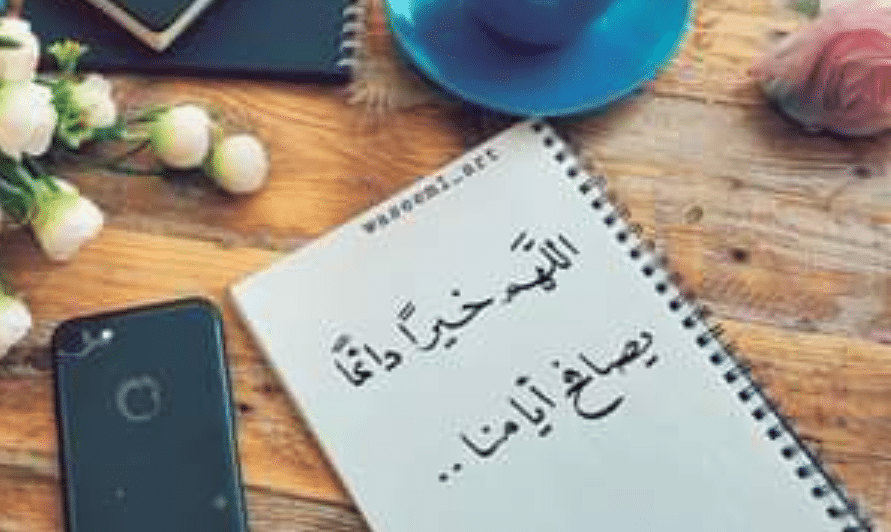 waseemi_art
اللهم خيرًا دائمًا
يصافح أيامنا ..